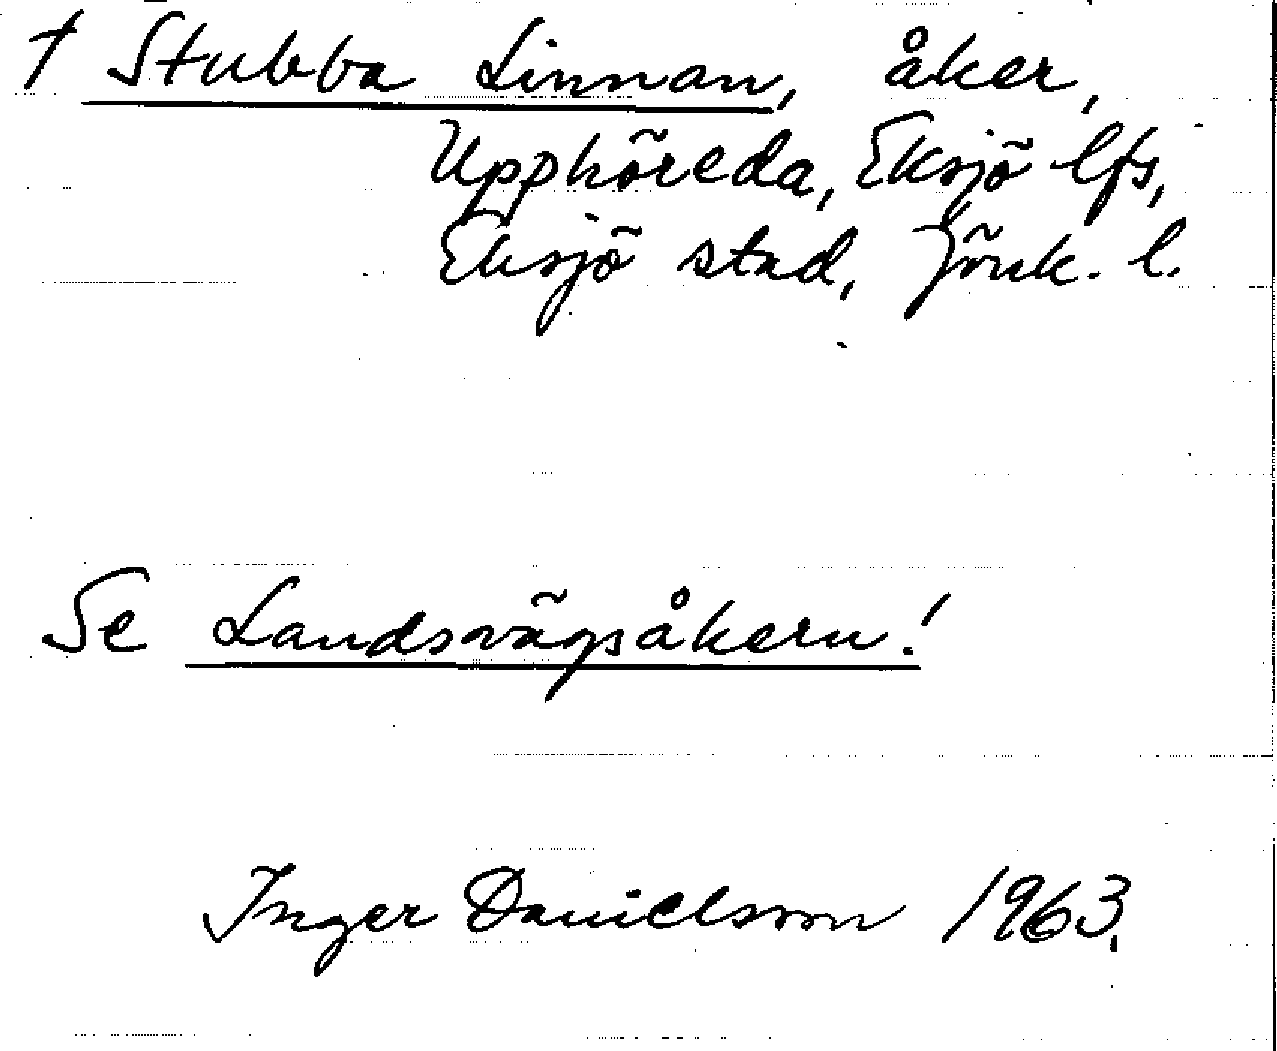 † Stubba Linnan, åker,
Upphöreda, Eksjö lfs,
Eksjö stad, Jönk. l.
Se Landsvägsåkern!
Inger Danielsson 1963.